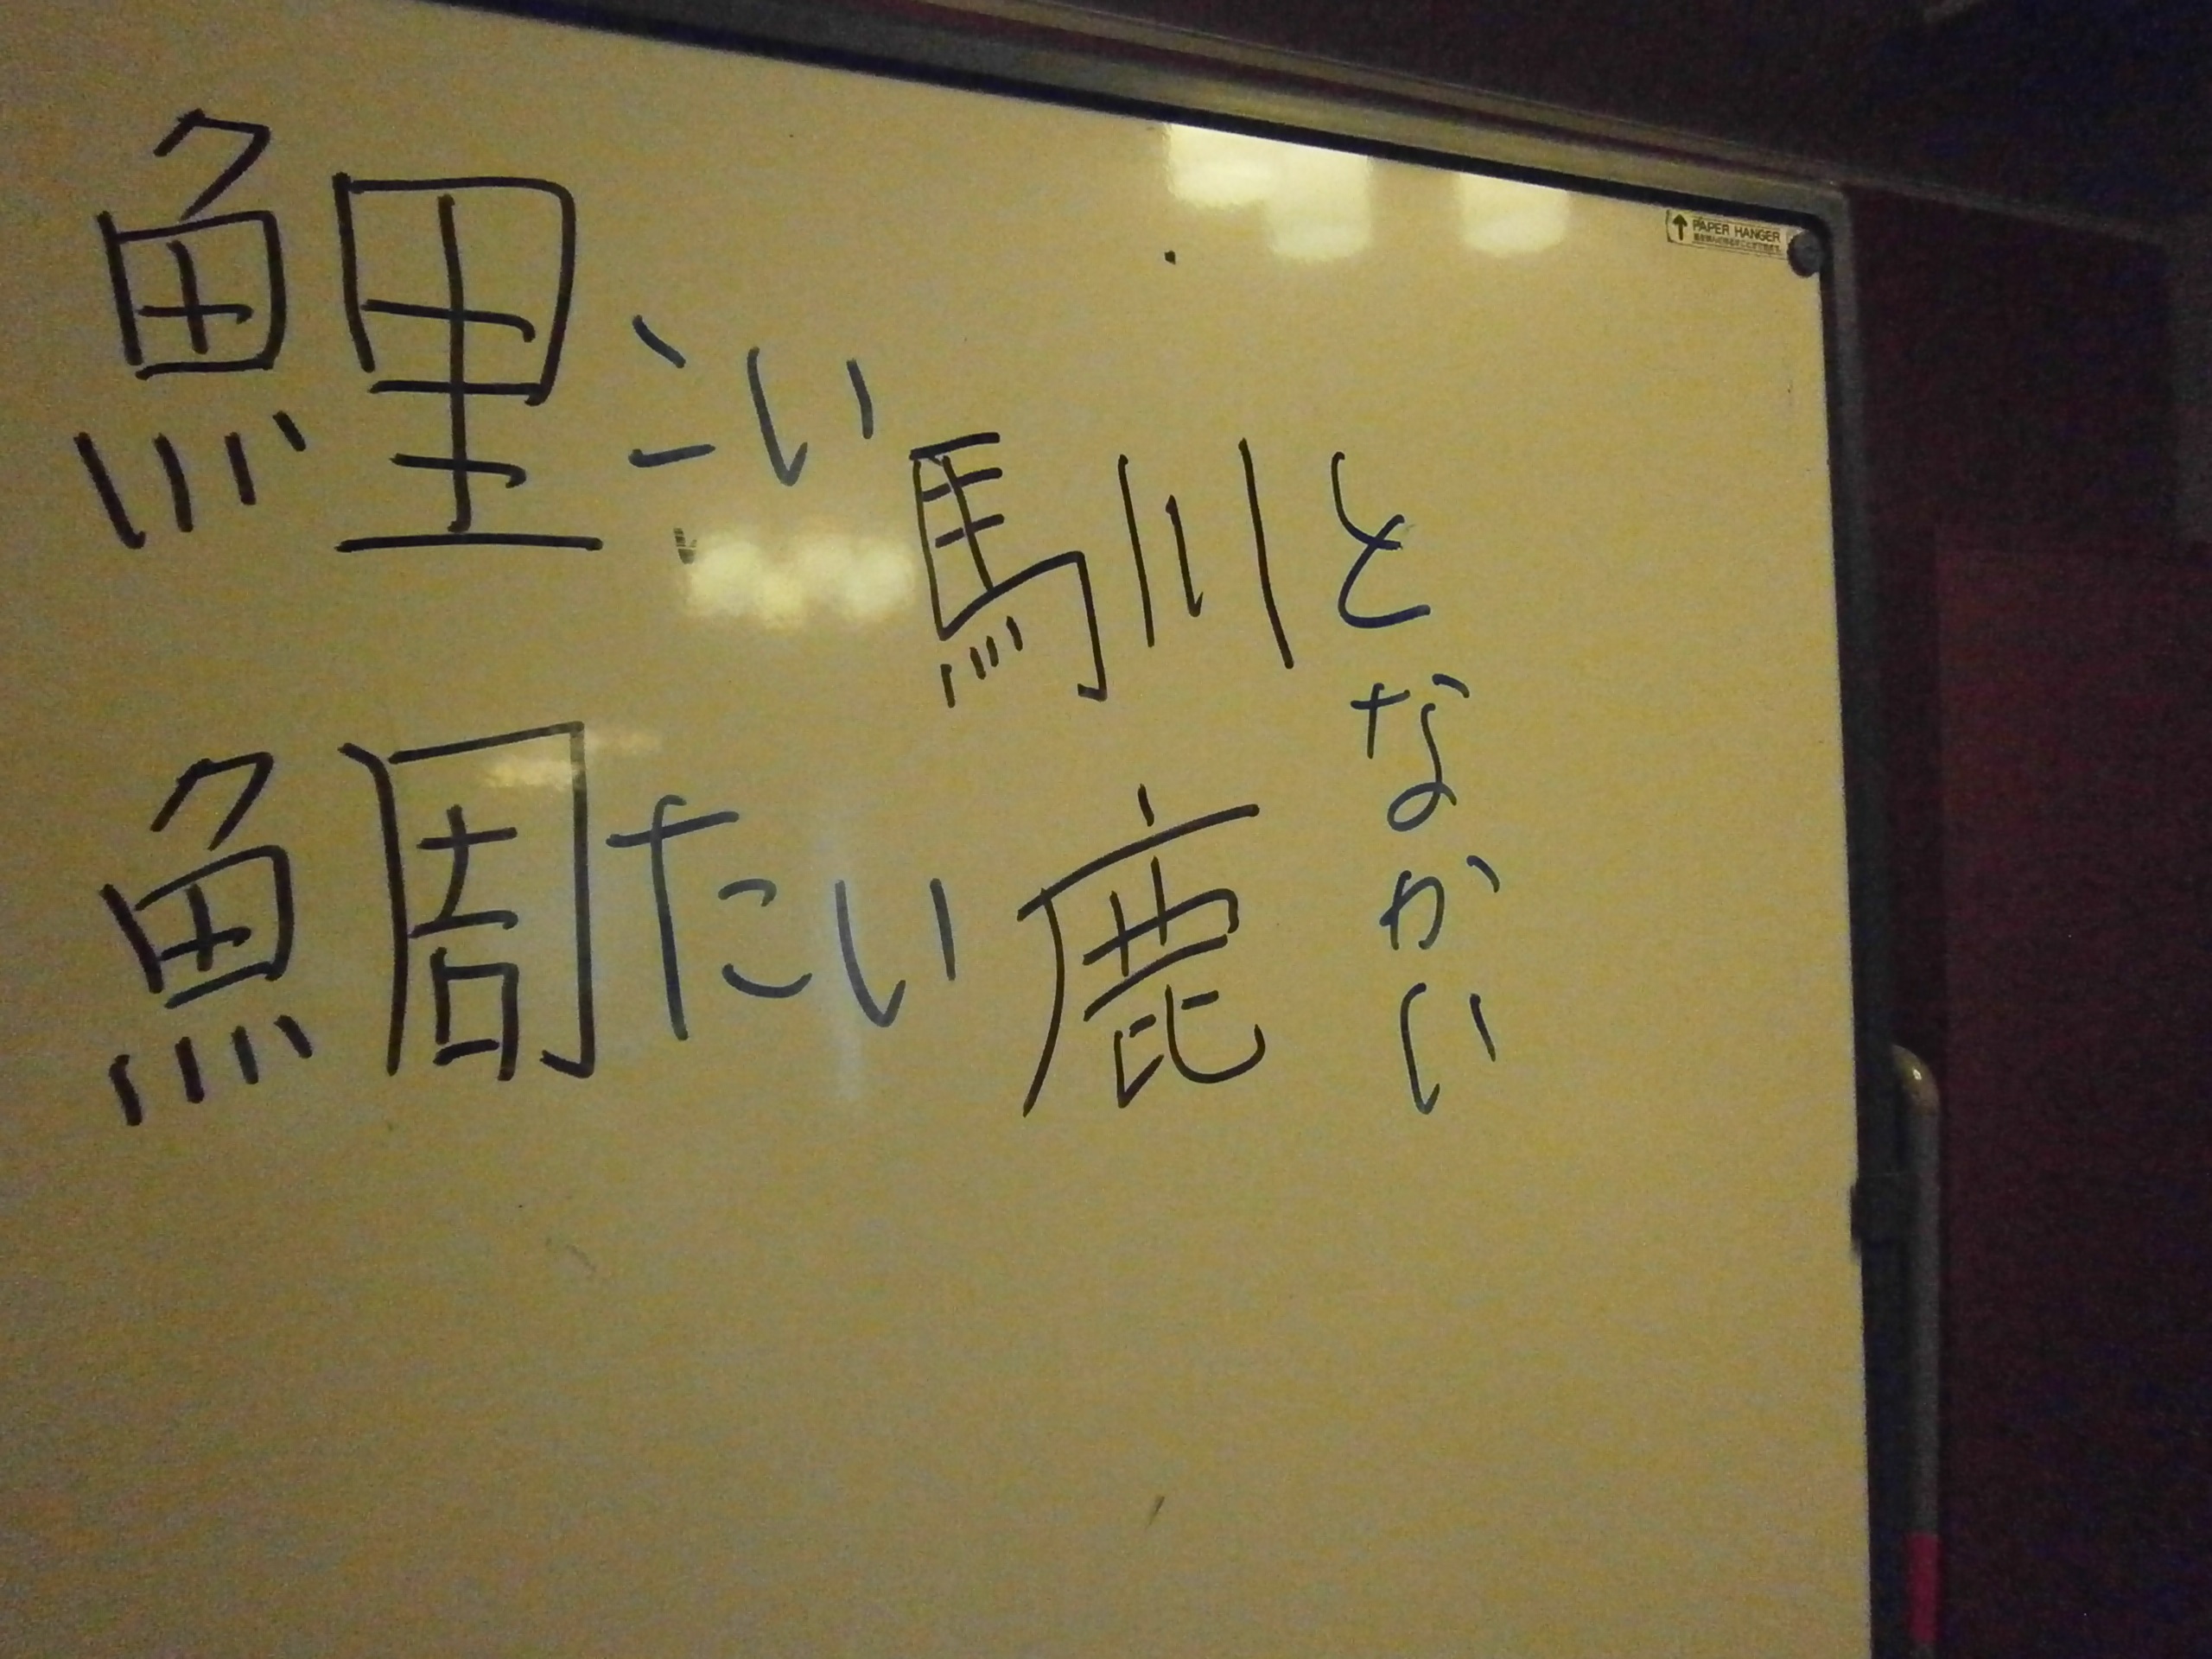 鯉 こい
鯛 たい
馴鹿
となかい
PAPER HANGER